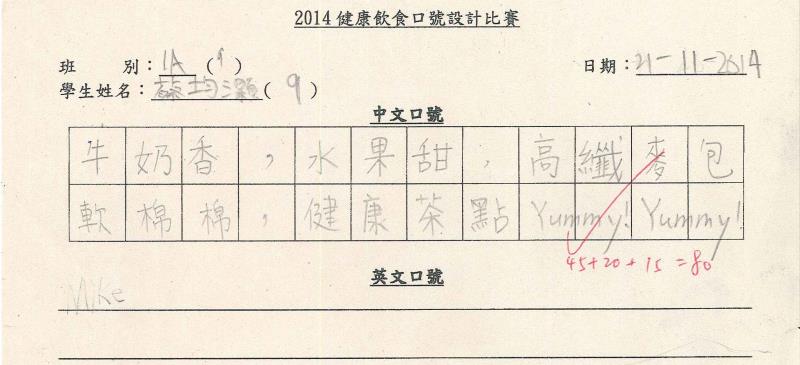 2014 健康飲食口號設計比賽
班　　別：1A (9)
日期：21-11-2014
學生姓名：蔡均灝(9)
中文口號
牛奶香，水果甜，高纖麥包
軟棉棉，健康茶點Yummy!Yummy!
45+20+15=80
英文口號
Mike